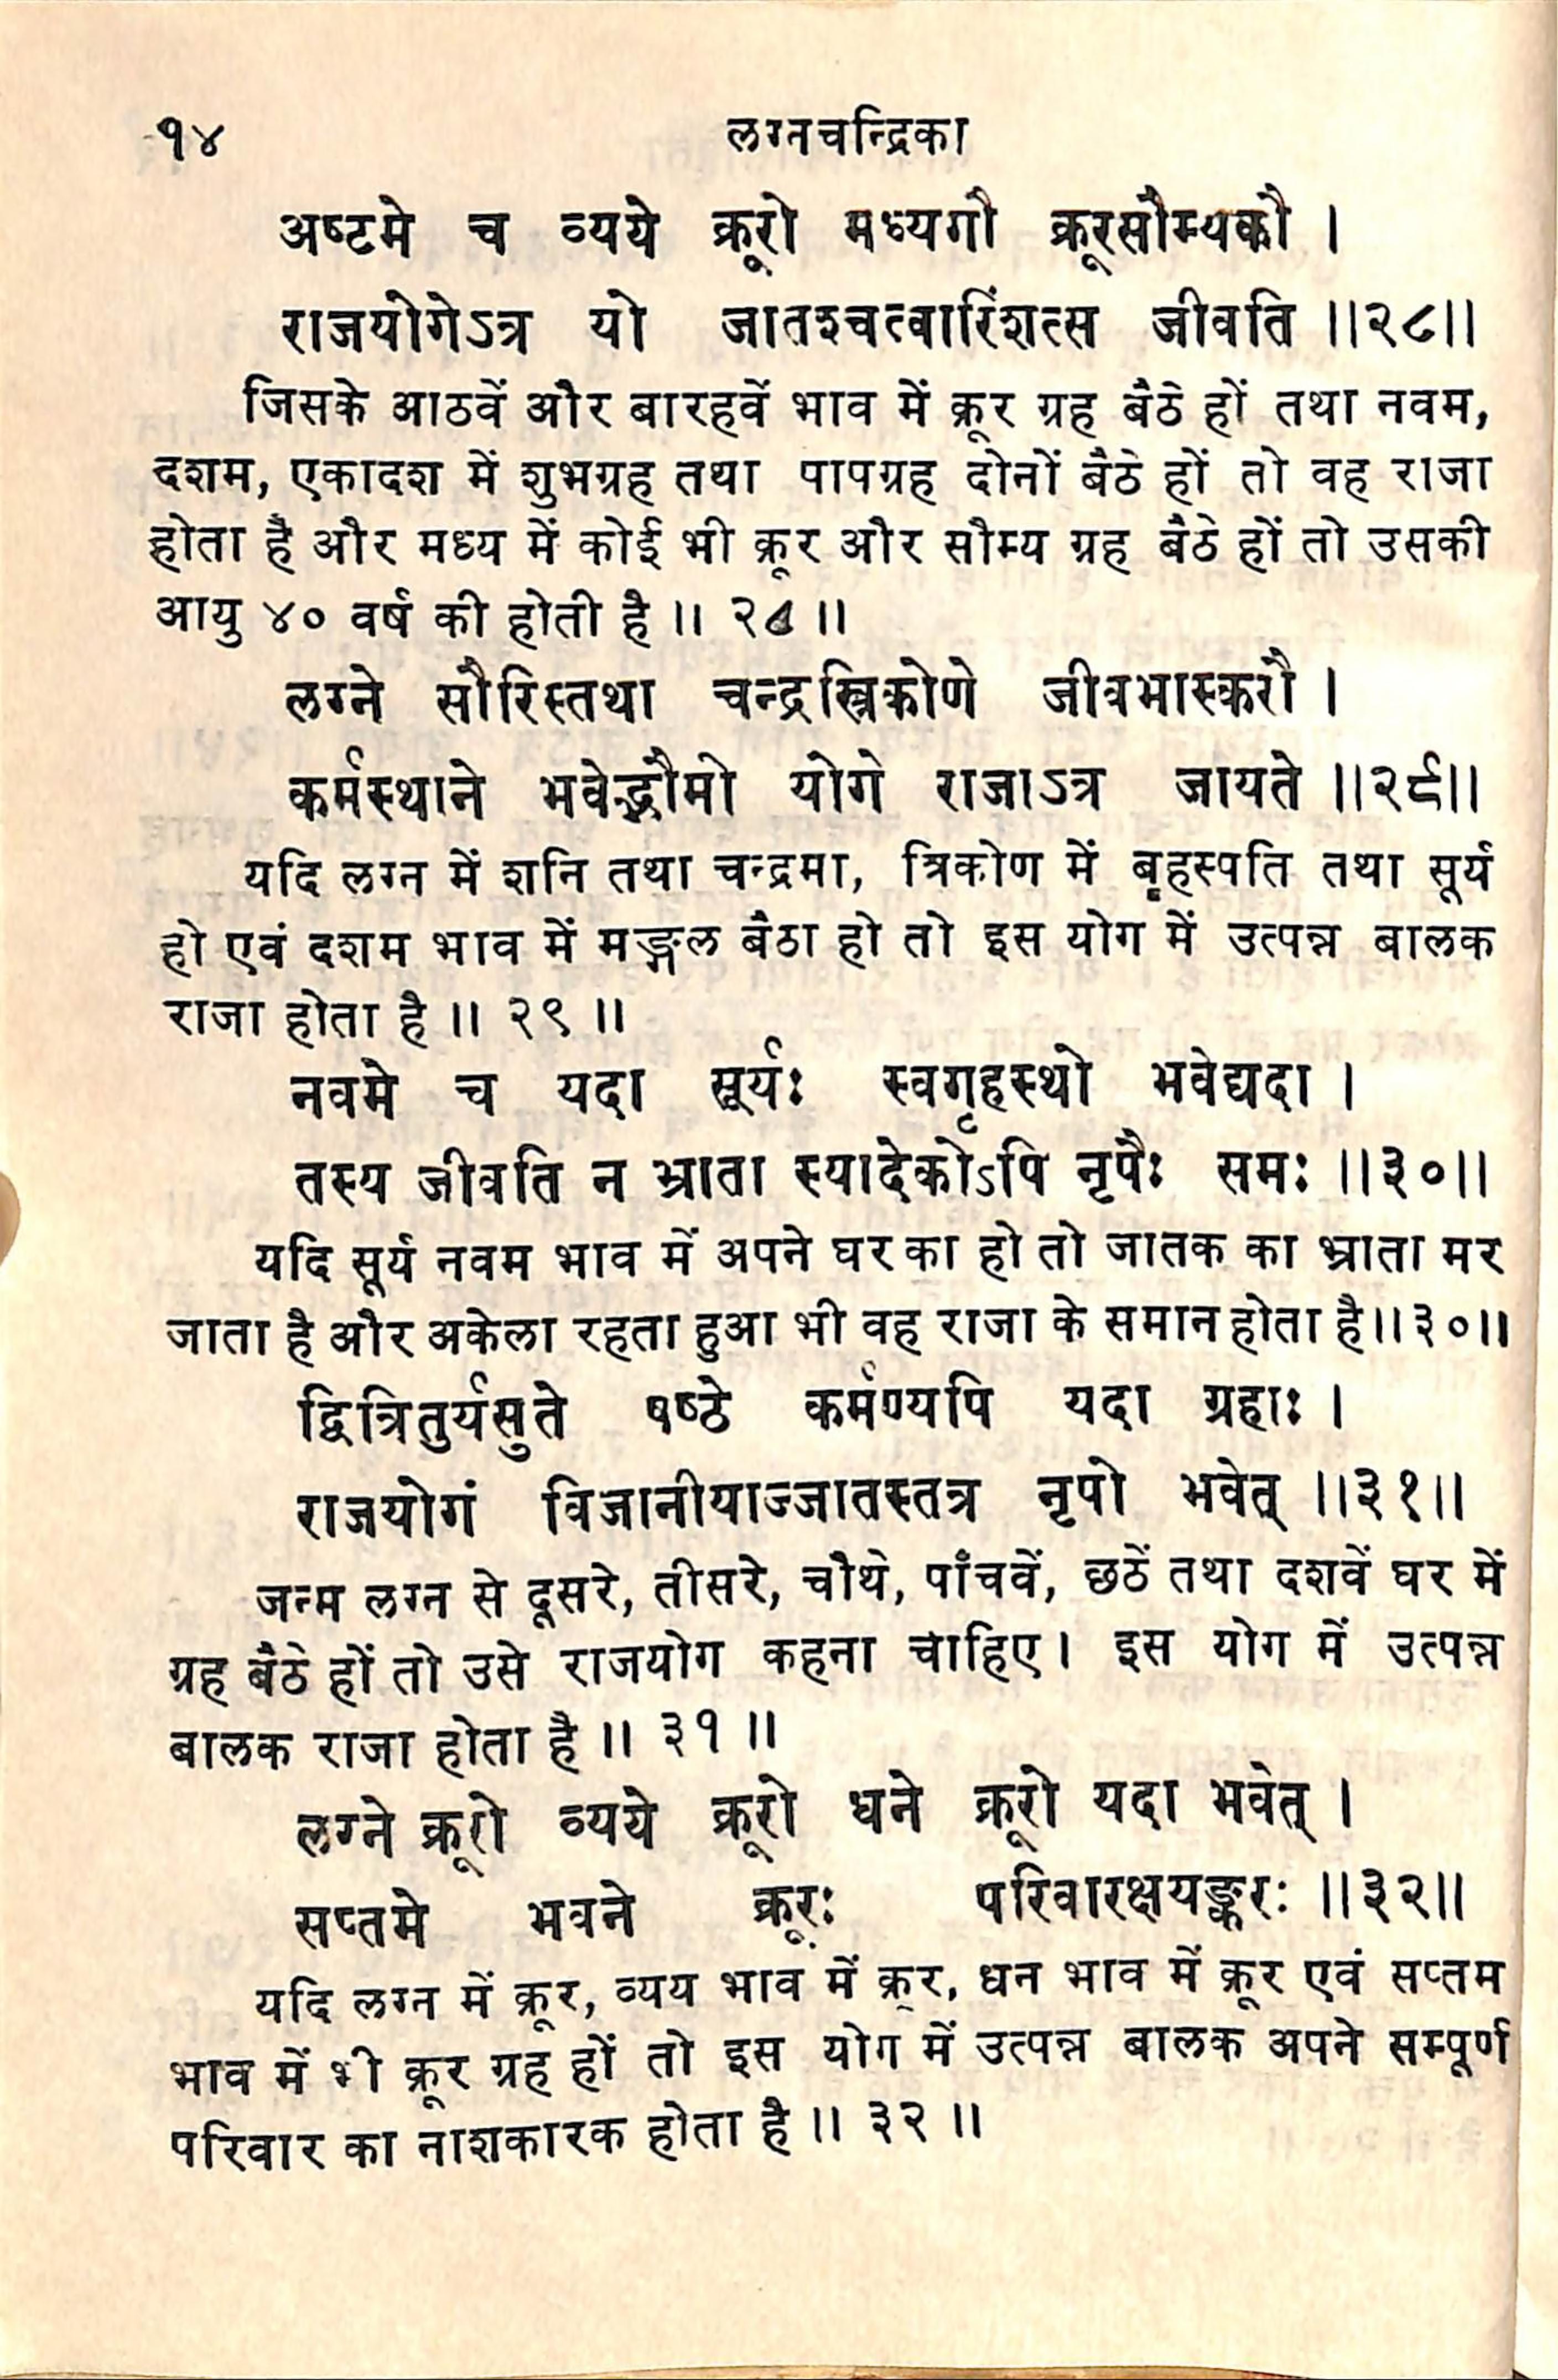 १४ लग्नचन्द्रिका
अष्टमे च व्यये क्रूरो मध्यगौ क्रूरसौम्यकौ ।
राजयोगेऽत्र यो जातश्चत्वारिंशत्स जीवति ॥२८॥
जिसके आठवें और बारहवें भाव में क्रूर ग्रह बैठे हों तथा नवम,
दशम, एकादश में शुभग्रह तथा पापग्रह दोनों बैठे हों तो वह राजा
होता है और मध्य में कोई भी क्रूर और सौम्य ग्रह बैठे हों तो उसकी
आयु ४० वर्ष की होती है ॥ २८ ॥
लग्ने सौरिस्तथा चन्द्रस्त्रिकोणे जीवभास्करौ ।
कर्मस्थाने भवेद्भौमो योगे राजाऽत्र जायते ॥२९॥
यदि लग्न में शनि तथा चन्द्रमा, त्रिकोण में बृहस्पति तथा सूर्य
हो एवं दशम भाव में मङ्गल बैठा हो तो इस योग में उत्पन्न बालक
राजा होता है ॥ २९ ॥
नवमे च यदा सूर्यः स्वगृहस्थो भवेद्यदा ।
तस्य जीवति न भ्राता स्यादेकोऽपि नृपैः समः ॥३०॥
यदि सूर्य नवम भाव में अपने घर का हो तो जातक का भ्राता मर
जाता है और अकेला रहता हुआ भी वह राजा के समान होता है॥३०॥
द्वित्रितुर्यसुते षष्ठे कर्मण्यपि यदा ग्रहाः ।
राजयोगं विजानीयाज्जातस्तत्र नृपो भवेत् ॥३१॥
जन्म लग्न से दूसरे, तीसरे, चौथे, पाँचवें, छठें तथा दशवें घर में
ग्रह बैठे हों तो उसे राजयोग कहना चाहिए। इस योग में उत्पन्न
बालक राजा होता है ॥ ३१ ॥
लग्ने क्रूरो व्यये क्रूरो धने क्रूरो यदा भवेत् ।
सप्तमे भवने क्रूरः परिवारक्षयङ्करः ॥३२॥
यदि लग्न में क्रूर, व्यय भाव में क्रूर, धन भाव में क्रूर एवं सप्तम
भाव में भी क्रूर ग्रह हों तो इस योग में उत्पन्न बालक अपने सम्पूर्ण
परिवार का नाशकारक होता है ॥ ३२ ॥